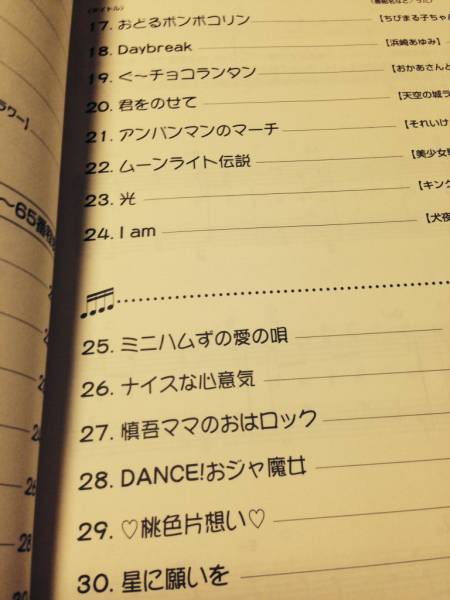 17. おどるポンポコリン【ちびまる子ちゃん
18. Daybreak【浜崎あゆみ】
19. く〜チョコランタン【おかあさんと
20. 君をのせて【天空の城ラ
21. アンパンマンのマーチ【それいけ
22. ムーンライト伝説【美少女戦
23. 光【キング
24. I am【犬夜
25. ミニハムずの愛の唄
26. ナイスな心意気
27. 慎吾ママのおはロック
28. DANCE!おジャ魔女
29. ♡桃色片想い♡
30. 星に願いを